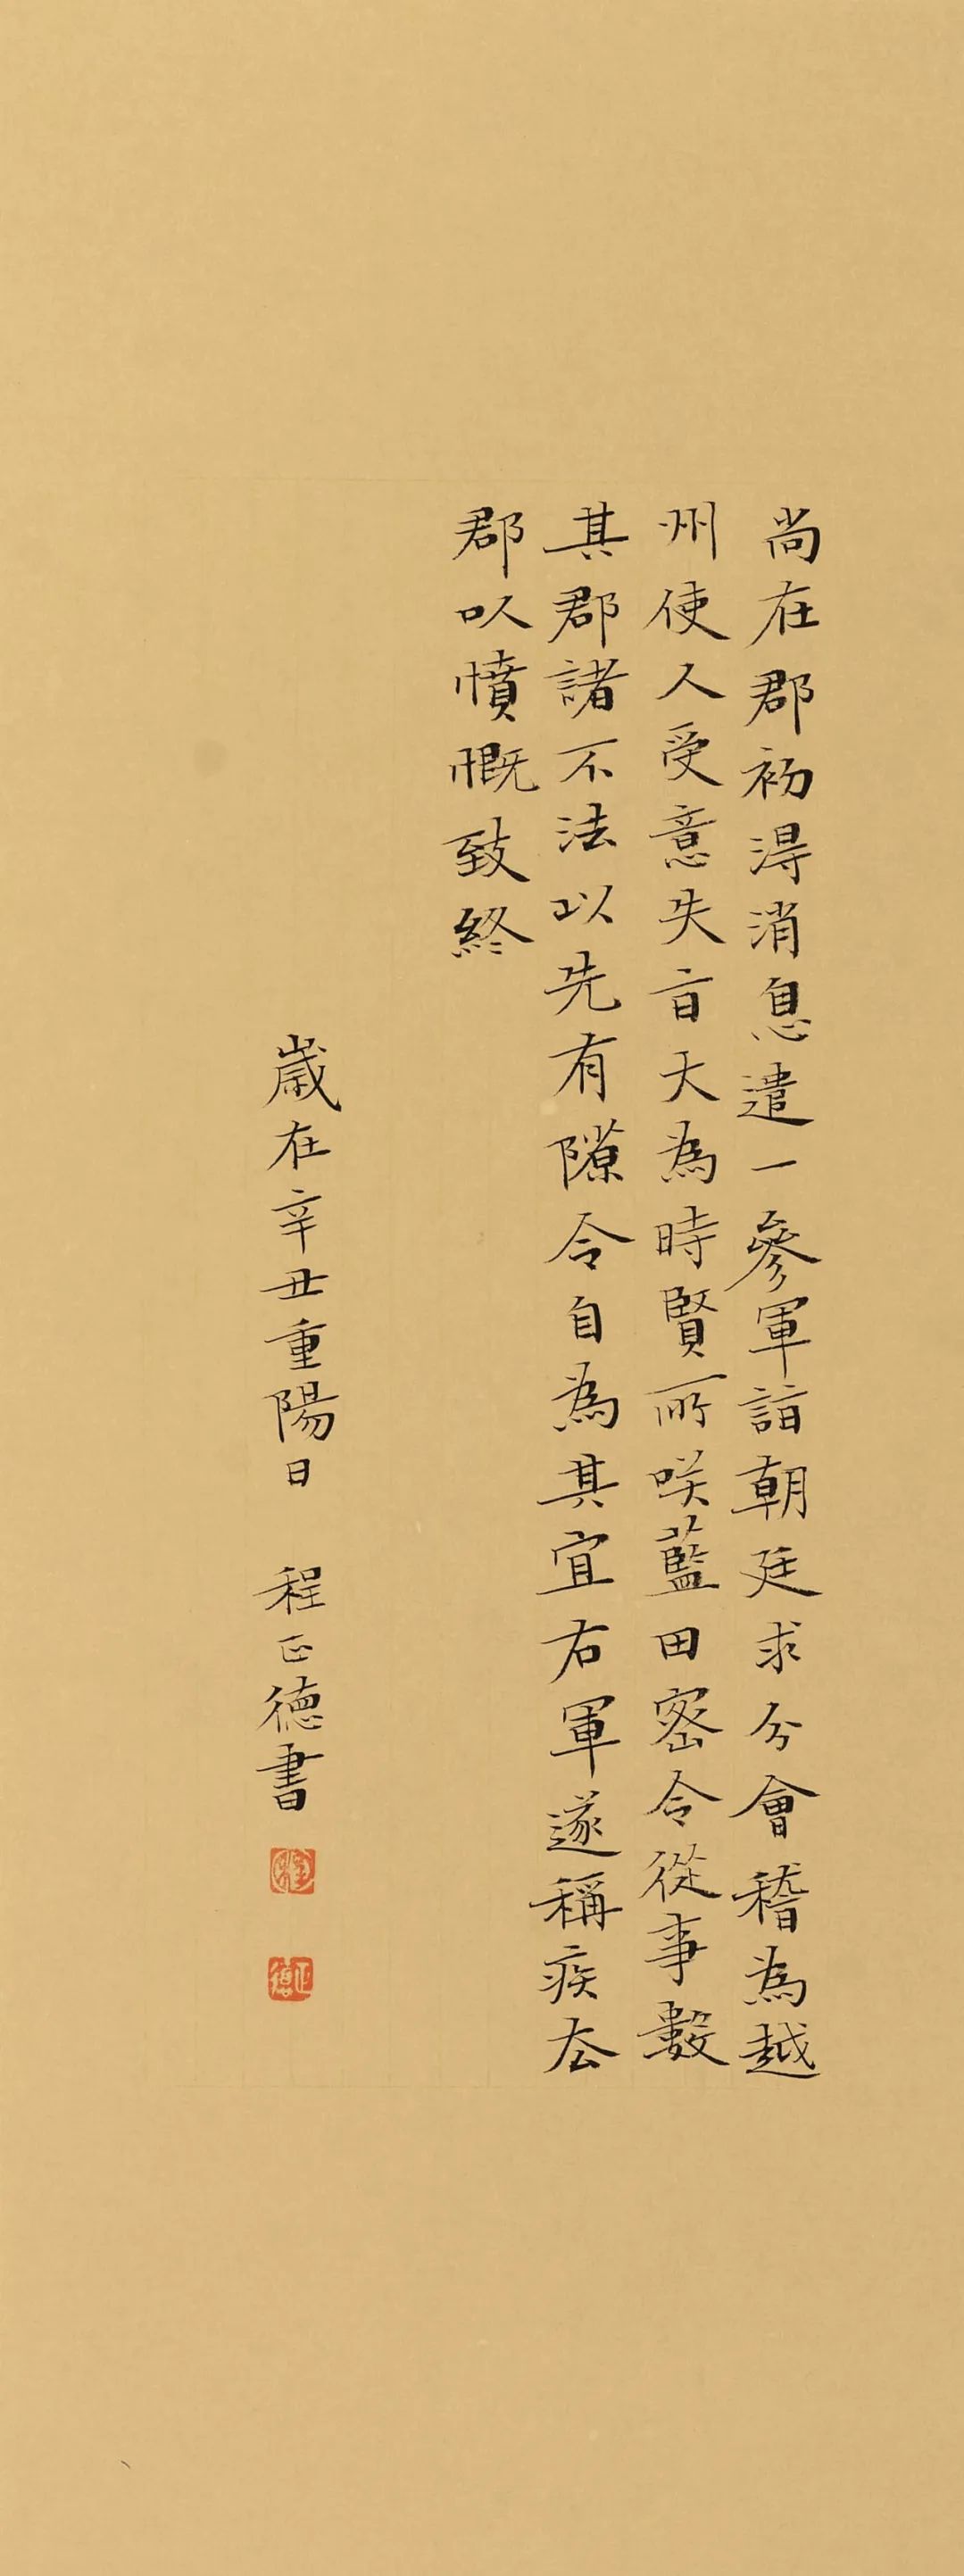 尚在郡初得消息遣一參軍詣朝廷求分會稽為越
州使人受意失旨大為時賢所咲藍田密令從事數
其郡諸不法以先有隙令自為其宜右軍遂稱疾去
郡以憤慨致終
歲在辛丑重陽日 程正德書
程
正德